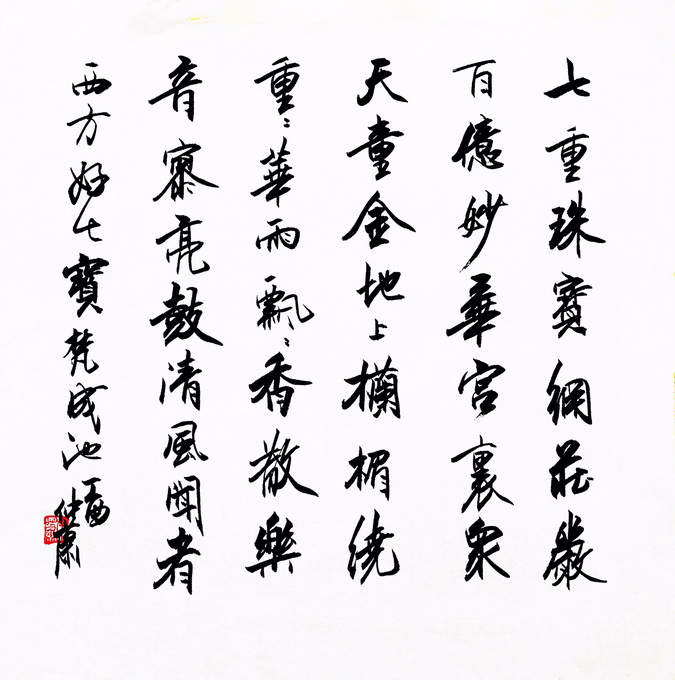 七重珠寶網莊嚴
百億妙華宮裏衆
天童金地上欄楯繞
重〻華雨飄〻香散樂
音寥亮鼓清風聞者
西方好七寶成池